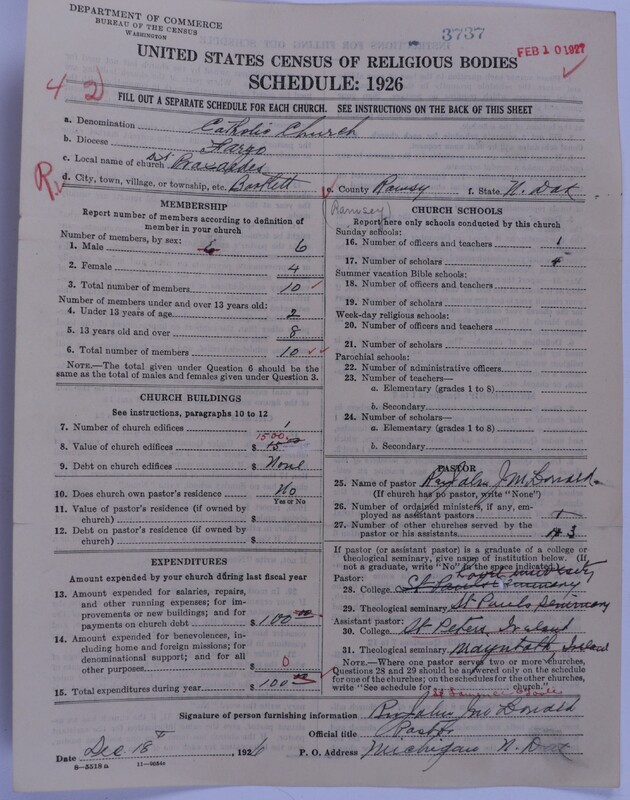 DEPARTMENT OF COMMERCE
BUREAU OF THE CENSUS
WASHINGTON
3737
FEB 10 1927
UNITED STATES CENSUS OF RELIGIOUS BODIES
SCHEDULE: 1926
4 2
FILL OUT A SEPARATE SCHEDULE FOR EACH CHURCH. SEE INSTRUCTIONS ON THE BACK OF THIS SHEET
a. Denomination Catholic Church
b. Diocese Fargo
c. Local name of church St Praxedes
d. City, town, village, or township, etc. Bartlett e. County Ramsy f. State N. Dak
R
(Ramsey)
MEMBERSHIP
Report number of members according to definition of
member in your church
Number of members, by sex:
1. Male 6 6
2. Female 4
3. Total number of members 10
Number of members under and over 13 years old:
4. Under 13 years of age 2
5. 13 years old and over 8
6. Total number of members 10
NOTE.—The total given under Question 6 should be
same as the total of males and females given under Question 3.
CHURCH BUILDINGS
See instructions, paragraphs 10 to 12
7. Number of church edifices 1
1500
8. Value of church edifices $ 15
9. Debt on church edifices $ None
10. Does church own pastor's residence No
Yes or No
11. Value of pastor's residence (if owned by
church) $
12. Debt on pastor's residence (if owned by
church) $
EXPENDITURES
Amount expended by your church during last fiscal year
13. Amount expended for salaries, repairs,
and other running expenses; for im-
provements or new buildings; and for
payments on church debt $ 100 00
14. Amount expended for benevolences, in-
cluding home and foreign missions; for
denominational support; and for all
other purposes $ 0
15. Total expenditures during year $ 100 00
CHURCH SCHOOLS
Report here only schools conducted by this church
Sunday schools:
16. Number of officers and teachers 1
17. Number of scholars 4
Summer vacation Bible schools:
18. Number of officers and teachers
19. Number of scholars
Week-day religious schools:
20. Number of officers and teachers
21. Number of scholars
Parochial schools:
22. Number of administrative officers
23. Number of teachers—
a. Elementary (grades 1 to 8)
b. Secondary
24. Number of scholars—
a. Elementary (grades 1 to 8)
b. Secondary
PASTOR
25. Name of pastor Rev John J McDonald
(If church has no pastor, write "None")
26. Number of ordained ministers, if any, em-
ployed as assistant pastors 1
27. Number of other churches served by the
pastor or his assistants 3
If pastor (or assistant pastor) is a graduate of a college or
theological seminary, give name of institution below. (If
not a graduate, write "No" in the space indicated)
Pastor:
28. College St Pauls Seminary
29. Theological seminary St Pauls Seminary
Assistant pastor:
30. College St Peters, Ireland
31. Theological seminary Maynooth, Ireland
NOTE.—Where one pastor served two or more churches,
Questions 28 and 29 should be answered only on the schedule
for one of the churches; on the schedules for the other churches,
write "See schedule for church."
Signature of person furnishing information Rev John J McDonald
Official title Pastor
Date Dec 18th 1926 P. O. Address Michigan N. Dak
8—5518a 11—9054a